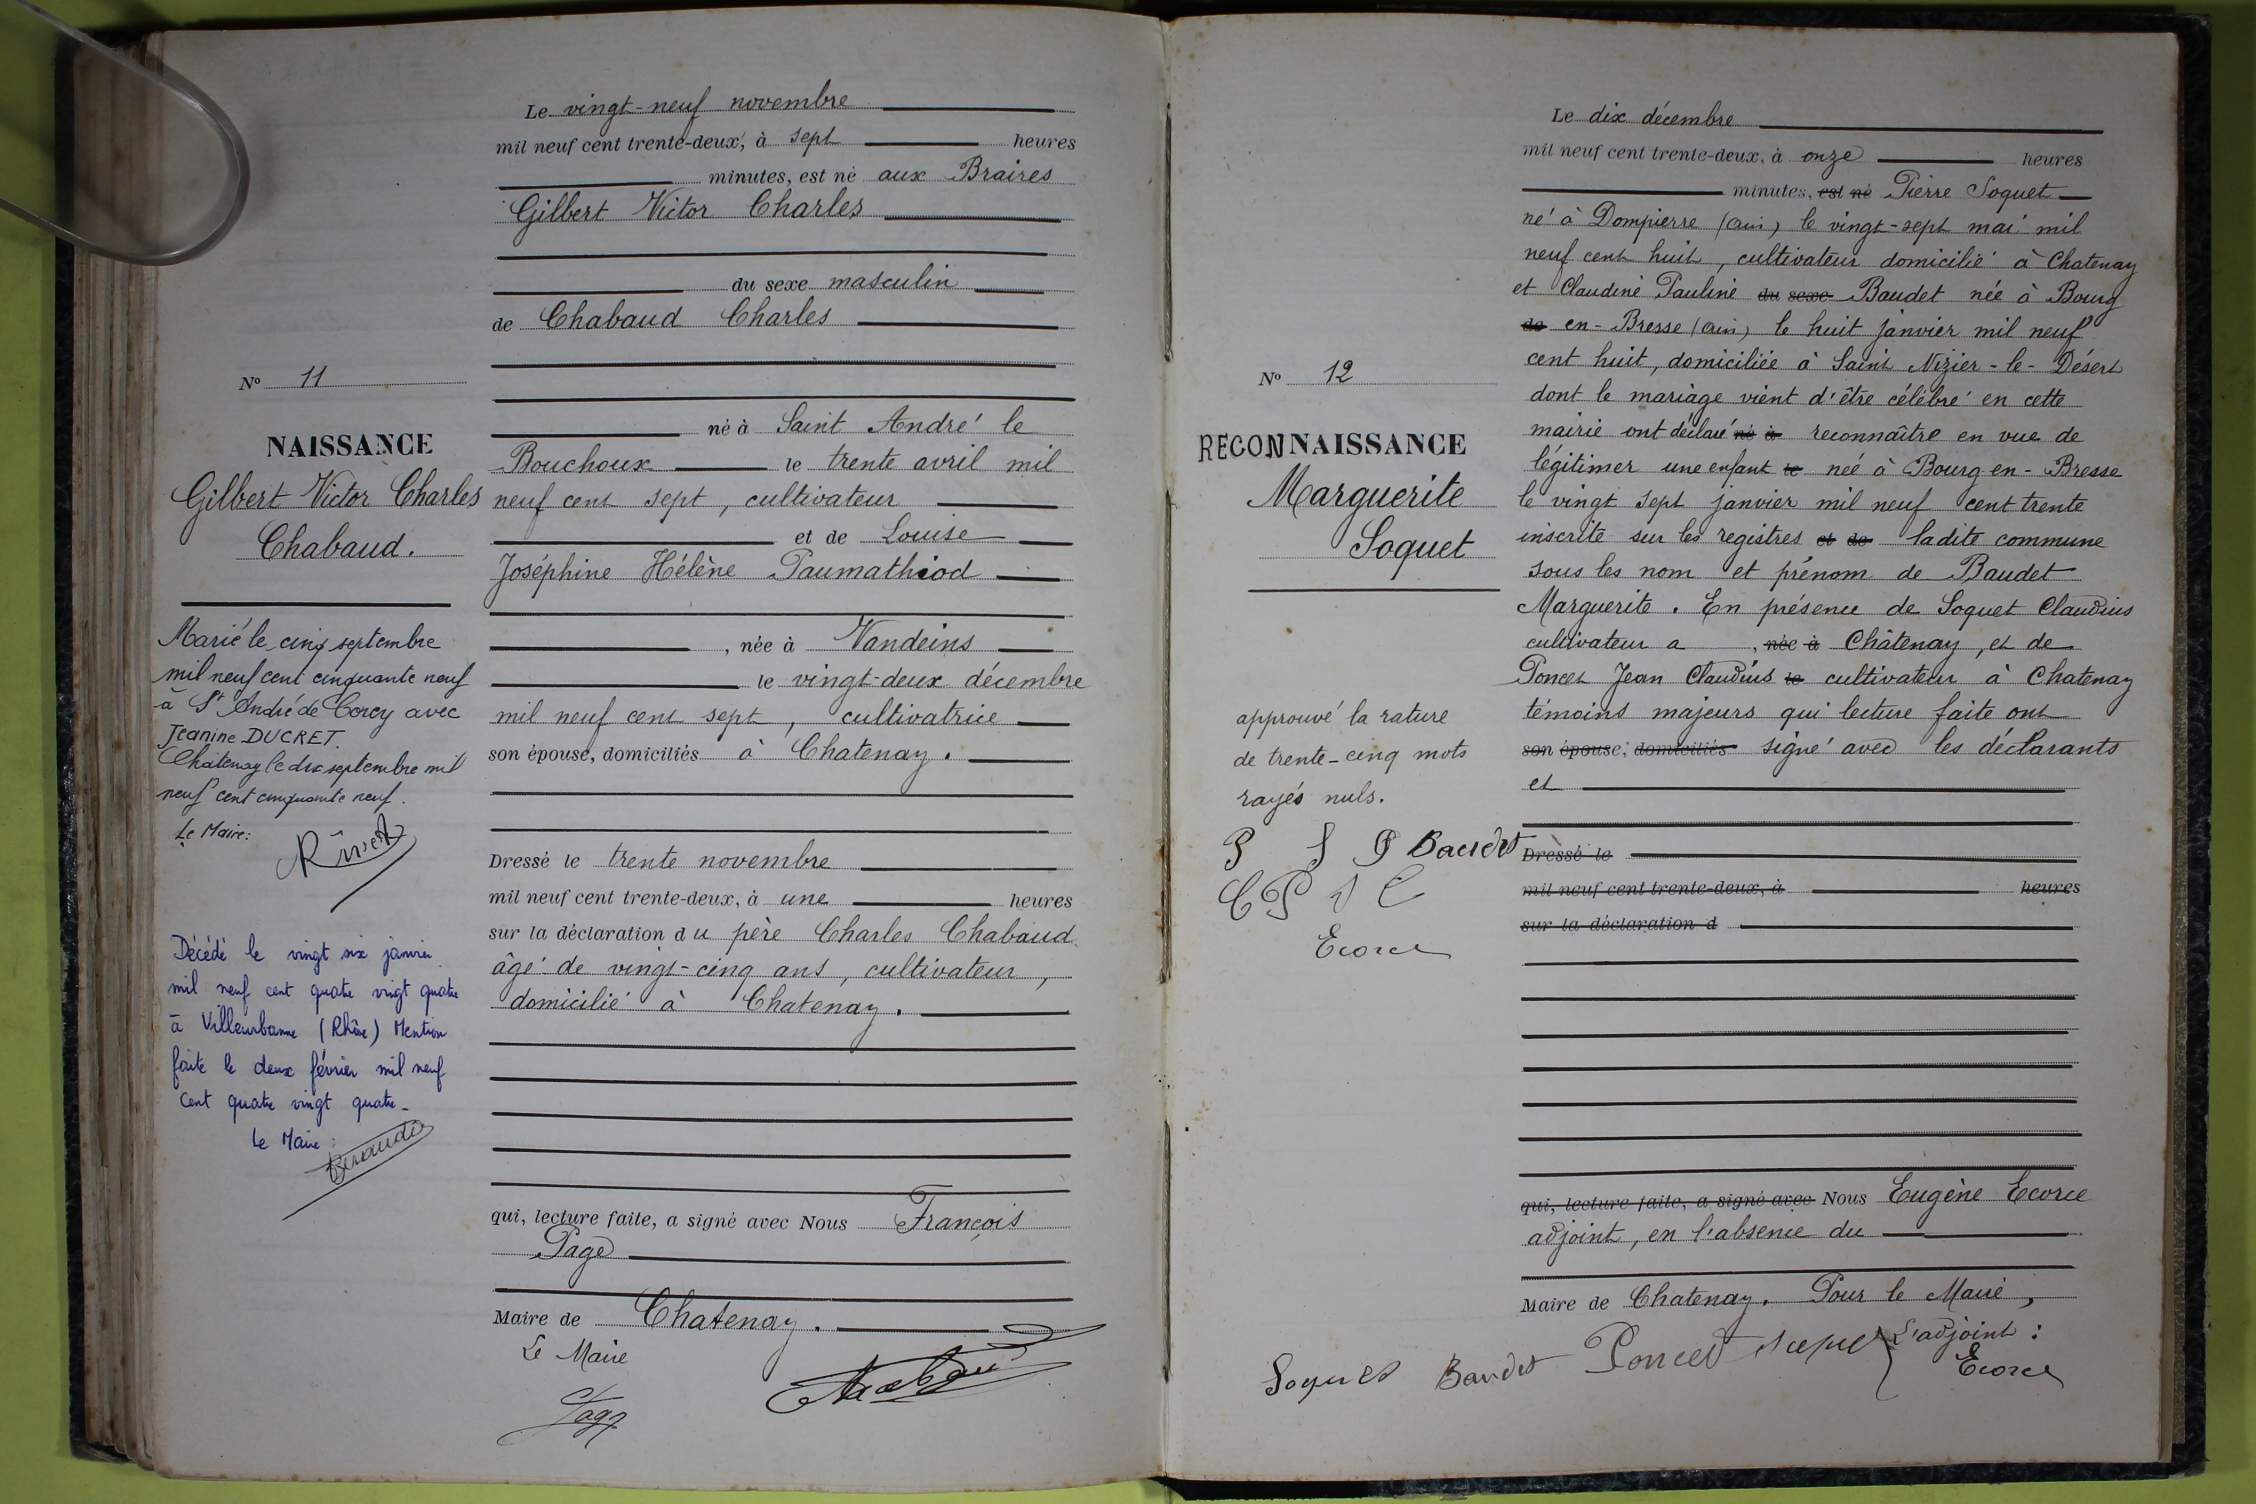 N° 11
NAISSANCE
Gilbert Victor Charles
Chabaud.
Marié le cinq septembre
mil neuf cent cinquante neuf
à St André de Corcy avec
Jeanine DUCRET.
Châtenay le dix septembre mil
neuf cent cinquante neuf.
Le Maire:
Décédé le vingt six janvier
mil neuf cent quatre vingt quatre
à Villeurbanne (Rhône) Mention
faite le deux février mil neuf
cent quatre vingt quatre_
Le Maire :
Le vingt-neuf novembre
mil neuf cent trente-deux, à sept heures
minutes, est né aux Braires
Gilbert Victor Charles
du sexe masculin
de Chabaud Charles
né à Saint André le
Bouchoux le trente avril mil
neuf cent sept, cultivateur
et de Louise
Joséphine Hélène Paumathiod
, née à Vandeins
le vingt-deux décembre
mil neuf cent sept, cultivatrice
son épouse, domiciliés à Chatenay.
Dressé le trente novembre
mil neuf cent trente-deux, à une heures
sur la déclaration du père Charles Chabaud
âgé de vingt-cinq ans, cultivateur,
domicilié à Chatenay.
qui, lecture faite, a signé avec Nous François
Page
Maire de Chatenay.
Le Maire
Page
N° 12
RECONNAISSANCE
Marguerite
Soquet
approuvé la rature
de trente-cinq mots
rayés nuls.
P S P Baudet
C P J C
Ecorce
Le dix décembre
mil neuf cent trente-deux, à onze heures
minutes, est né Pierre Soquet
né à Dompierre (Ain) le vingt-sept mai mil
neuf cent huit, cultivateur domicilié à Chatenay
et Claudine Pauline du sexe Baudet née à Bourg
de en-Bresse (Ain) le huit janvier mil neuf
cent huit, domiciliée à Saint Nizier-le-Désert
dont le mariage vient d'être célébré en cette
mairie ont déclaré né à reconnaître en vue de
légitimer une enfant le neé à Bourg-en-Bresse
le vingt sept janvier mil neuf cent trente
inscrite sur les registres et de ladite commune
sous les nom et prénom de Baudet
Marguerite. En présence de Soquet Claudius
cultivateur a , née à Châtenay, et de
Poncet Jean Claudius le cultivateur à Chatenay
témoins majeurs qui lecture faite ont
son épouse, domiciliés signé avec les déclarants
et
Dressé le
mil neuf cent trente-deux, à heures
sur la déclaration d
qui, lecture faite, a signé avec Nous Eugène Ecorce
adjoint, en l'absence du
Maire de Chatenay. Pour le Maire,
L'adjoint :
Soquet Baudet Poncet Ecorce